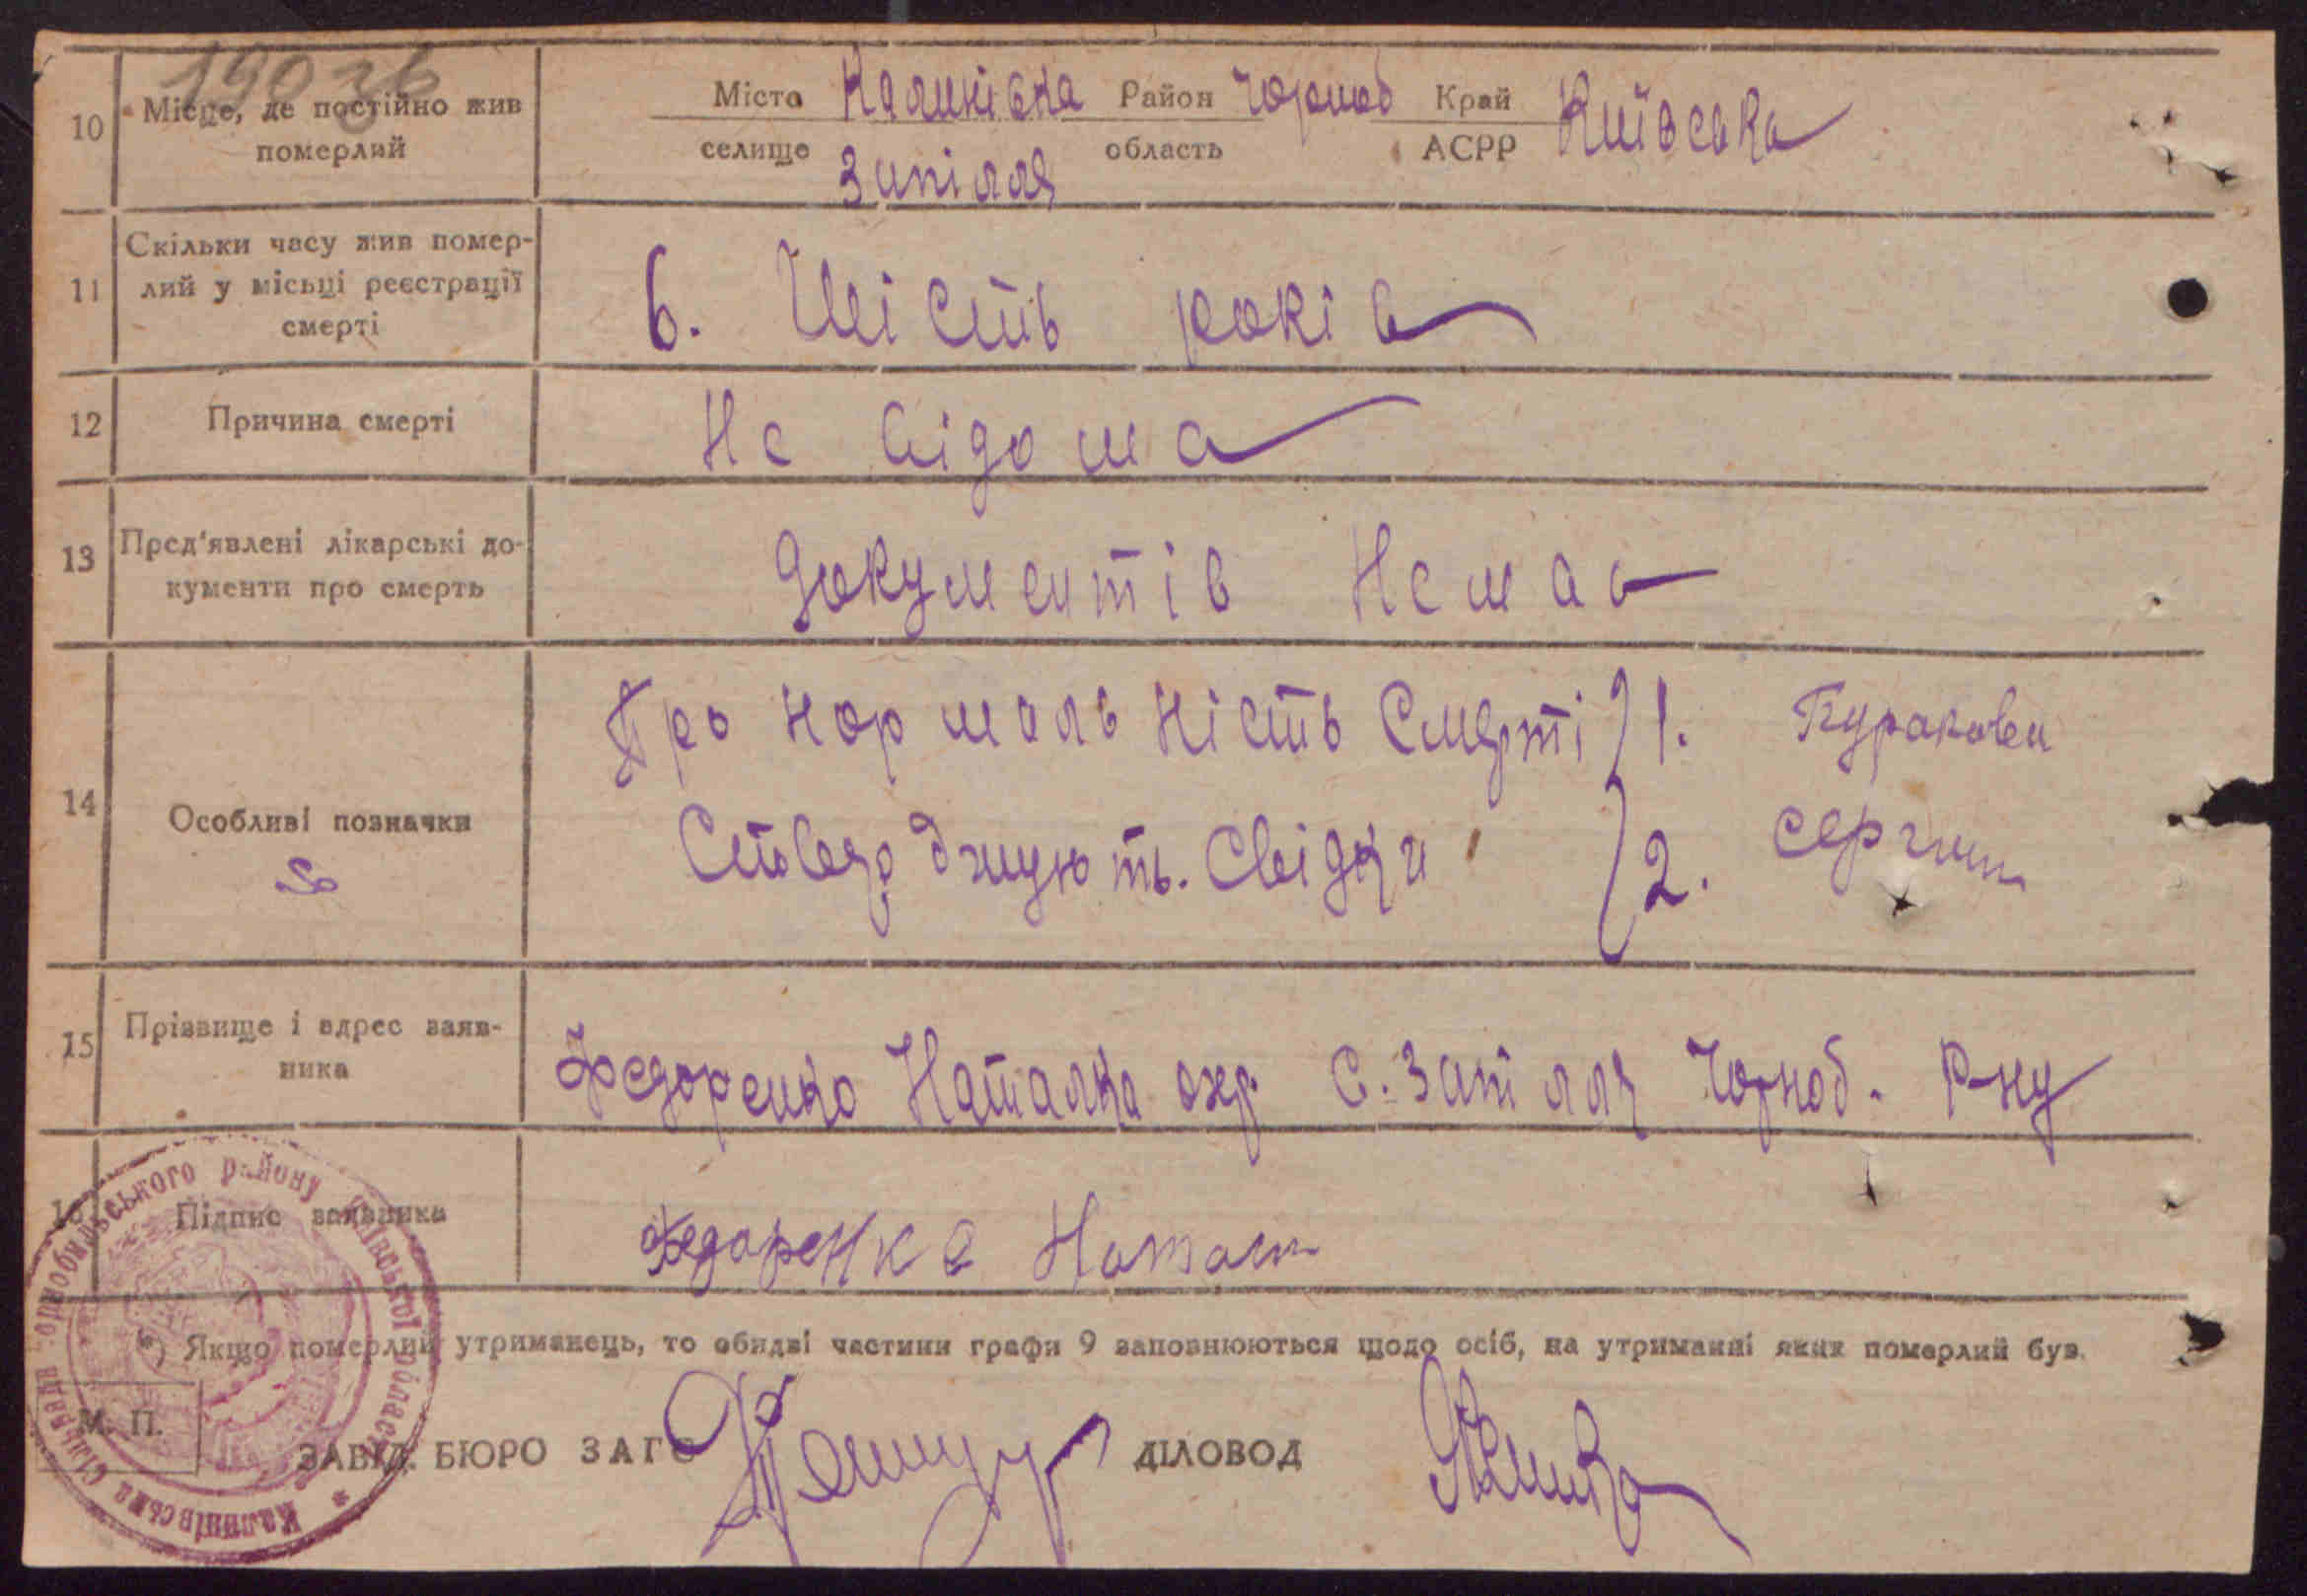 190
10 Місце, де постійно жив померлий
Місто селище Калинівка Запілля Район область Чорноб Край АСРР Київська
11 Скільки часу жив помер-
лий у місьці реєстрації
смерті
6. Шість років
12 Причина смерті
Не відома
13 Пред'явлені лікарські до-
кументи про смерть
Документів Немає
14 Особливі позначки
Про нормальність Смерті 1.
Стверджують. Свідки 2.
15 Прізвище і адрес заяв-
ника
Федоренко Наталка с. Запілля Чорноб. р-ну
16 Підпис заявника
Федоренко
*) Якщо померлий утриманець, то обидві частини графи 9 заповнюються щодо осіб, на утриманні яких померлий був.
М. П.
ЗАВІД. БЮРО ЗАГС ДІЛОВОД
Калинівська сільрада Чорнобильського району Київської області